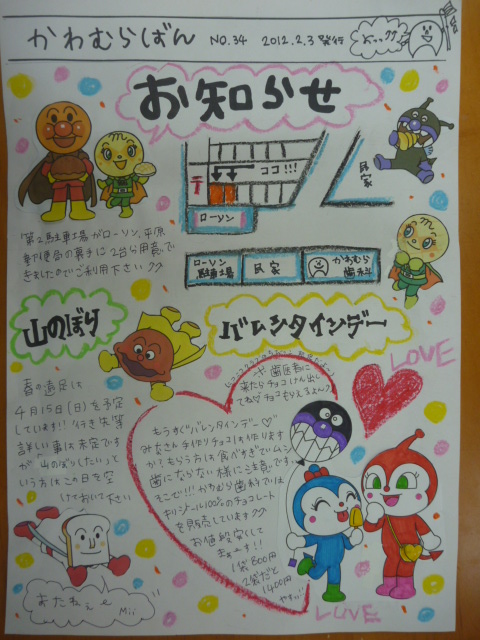 かわむらばん NO.34 2012.2.3 発行
お知らせ
ココ!!!
〒
ローソン
民家
ローソン駐車場
民家
かわむら歯科
第2駐車場がローソン、平原
郵便局の裏手に2台分用意で
きましたのでご利用下さい
山のぼり
春の遠足は
4月15日(日)を予定
しています!!行き先等
詳しい事は未定です
が「山のぼりしたい」と
いう方はこの日を空
けておいて下さい
またねぇ〜 Mii
バレンタインデー
LOVE
や歯医者に
来たらチョコけん出し
てね♡チョコもらえるよ〜
もうすぐバレンタインデー♡
みなさん手作りチョコは作ります
か?もらう方は食べすぎてムシ
歯にならない様にご注意です。
そこで!!!かわむら歯科では
キシリトール100%のチョコレート
を販売しています
お値段そして
1袋800円
2袋だと
1400円
LOVE